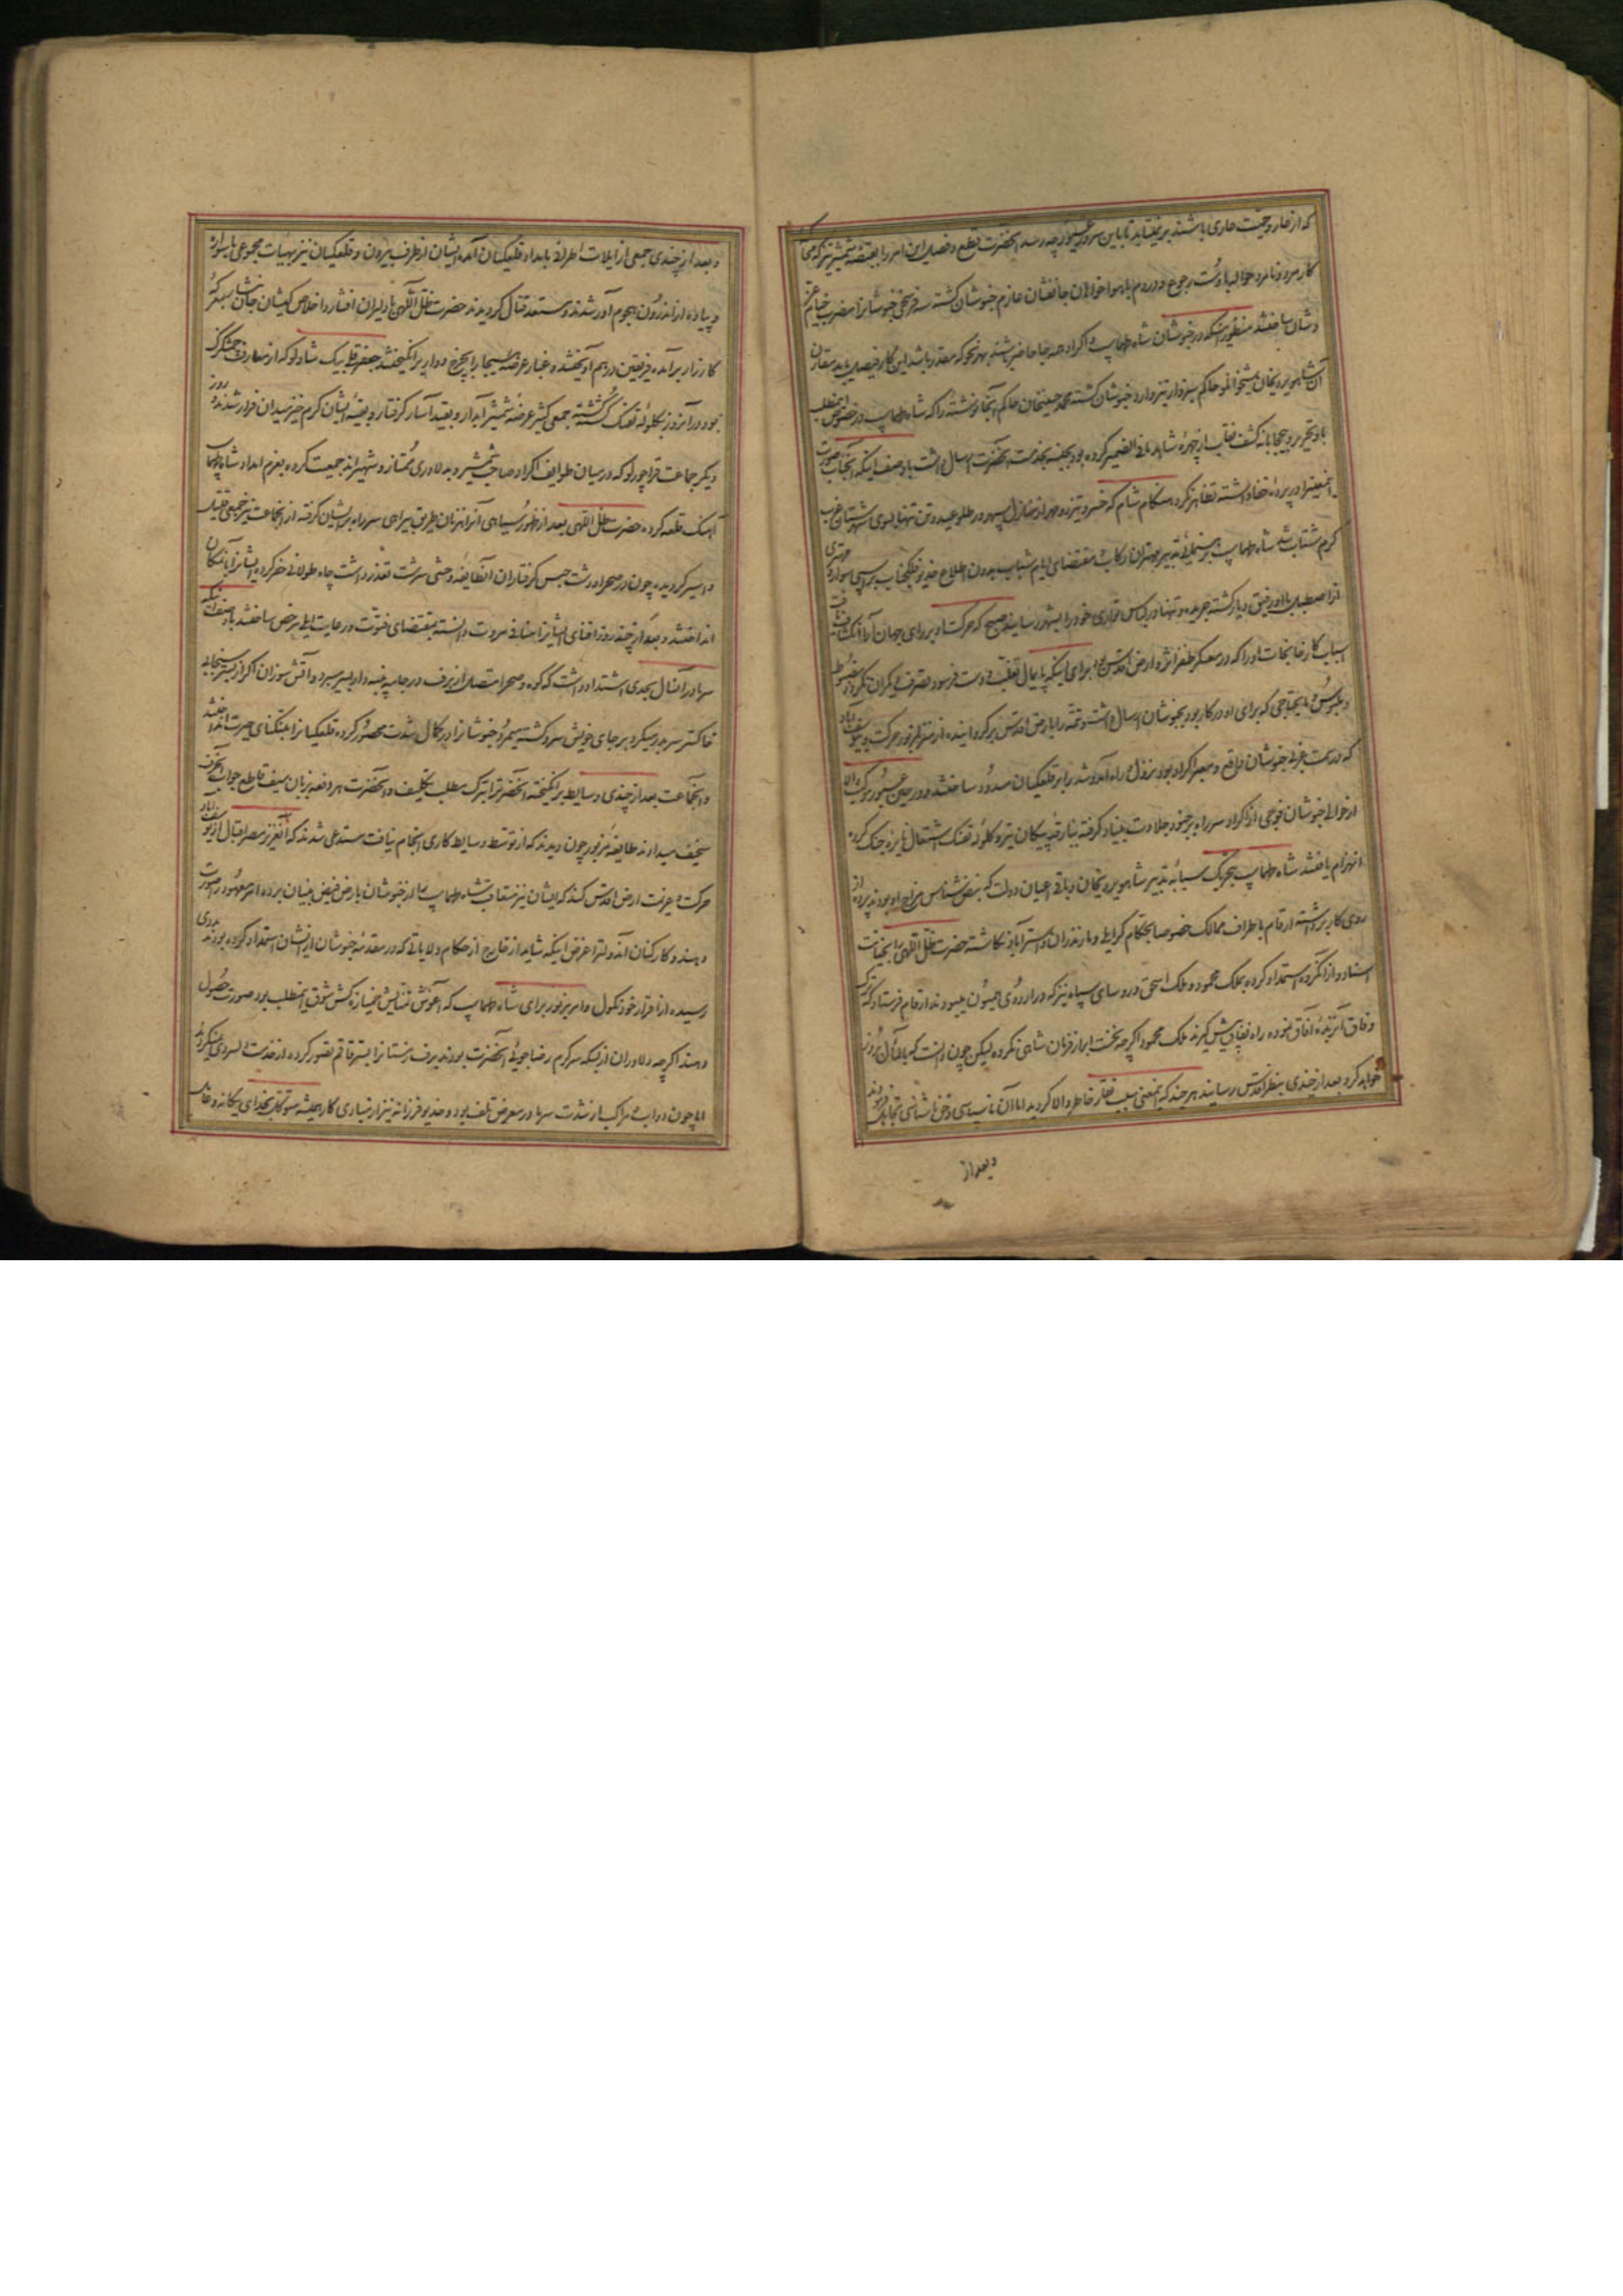 که از عار و حمیت عاری باشند بر نمیتابد تا باین سرور غیور چه رسد آنحضرت قطع و فصل این امر را بقبضه شمشیر تیز که محا
کار مرد و نامرد حواله باوست رجوع و در دوم ماه با هواخواهان جانفشان عازم خبوشان گشته سه فرسخی خبوشانرا مضرب خیام عز
و شان ساختند منظور اینکه در خبوشان شاه طهماسب و اکراد همه جا حاضر باشند بهر نحو که مقدر باشد این کار فیصل یابد مقارن
آن شاهویردیخان شیخوانلو حاکم سبزوار نیز وارد خبوشان گشته محمد حسینخان حاکم آنجا نوشته را که شاه طهماسب در خصوص مطلب
باو تحریر و بیحجابانه کشف نقاب از چهره شاهد ما فی الضمیر کرده بود بجنسه بخدمت آنحضرت ارسال داشت با وصف اینکه آنجناب صورت
اینمعنی را در پرده خفا داشته تظاهر نکرد هنگام شام که خسرو تیزرو مهر از منازل سپهر تن تنها بسوی شهرستان غرب
گرم شتاب شد شاه طهماسب برهنمائی تدبیر مهتران رکاب بمقتضای ایام شباب بدون اطلاع خدیو فلکجناب بر اسبی سوار و مهتری
از اصطبل با او رفیق و یار گشته جریده و تنها در لباس تواری خود را بشهر رسانید صبح که حرکت او بر رای جهان آرا انکشاف یافت
اسباب کارخانجات او را که در معسکر ظفر اثر و ارض اقدس بود برای اینکه پایمال تغلب و دست فرسود تصرف دیگران نگردد مضبوط
و ملبوس و مایحتاجی که برای او در کار بود بخبوشان ارسال داشته و تتمه را بارض اقدس برگردانیده از منزل مزبور حرکت و بیوسف آباد
که در سمت غربی خبوشان واقع و معبر اکراد بود نزول و راه آمد و شد را بر قلعگیان مسدود ساختند و در حین عبور موکب والا
از حوالی خبوشان فوجی از اکراد سر راه بر جنود جلادت بنیاد گرفته بنایره پیکان تیر و گلوله تفنگ اشتعال نایره جنگ کرده
انهزام یافتند شاه طهماسب بتحریک سبابه تدبیر شاهویردیخان و باقی اعیان دولت که نبض شناس مزاج او بودند پرده از
روی کار برداشته ارقام باطراف ممالک خصوصا بحکام گرایلی و مازندران و استرآباد نگاشته حضرت ظل اللهی را بخیانت
اسناد و از آنگروه استمداد کرده بملک محمود و ملک اسحق و روسای سپاه نیز که در اردوی همیون میبودند ارقام فرستاد که ترک
وفاق آن برگزیده آفاق نموده راه نفاق پیش گیرند ملک محمود اگرچه بخت ابراز فرمان شاهی نکرده لیکن چون دانست که بالمآل بروز
خواهد کرد بعد از چندی بنظر اقدس رسانید هر چند که اینمعنی سبب نقار خاطر والا گردید اما آن ناسپاسی و حق ناشناسی تجاهل فرمودند
و بعد از
و بعد از چندی جمعی از ایلات اطراف بامداد قلعگیان آمده ایشان از طرف بیرون و قلعگیان نیز بهیات مجموعی با سواره
و پیاده از اندرون هجوم آور شدند و مستعد قتال گردیدند حضرت ظل اللهی با دلیران افشار و اخلاص کیشان جان نثار بمعرکه
کارزار برآمده فریقین در هم آویختند و غبار عرصه هیجا را بچرخ دوار برانگیختند جعفرقلی بیک شادلو که از معارف چمشگزک
بود در آنروز بگلوله تفنگ گشته جمعی کثیر عرضه شمشیر آبدار و بقید آسار گرفتار و بقیه ایشان گرم خیز میدان فرار شدند روز
دیگر جماعت قراچورلو که در میان طوایف اکراد صاحب شمشیر و بدلاوری ممتاز و شهیر اند جمعیت کرده بعزم امداد شاه طهماسب
آهنگ قلعه کرده حضرت ظل اللهی بعد از ظهور سیاهی آنها از میان طریق بیراهی سر راه بر ایشان گرفته از آنجماعت نیز جمعی قتیل
و اسیر گردید چون در صحرا و دشت حبس گرفتاران آنطایفه وحشی سرشت تعذر داشت چاه طولانی حفر کرده ایشانرا بآنمکان
انداختند و بعد از چند روز افنای ایشانرا منافی مروت دانسته بمقتضای فتوت و رعایت ایلی مرخص ساختند با وصف اینکه
سرما در آنسال بحدی اشتداد داشت که کوه و صحرا متصل از برف در جامه پنبه دار بسر میبرد و آتش سوزان اگر از بستر سنجابی
خاکستر سر بدر میکرد بر جای خویش سرد گشته میمرد خبوشانرا در کمال شدت محصور کرده قلعگیانرا بتنگنای حیرت انداختند
و آنجماعت بعد از چندی وسایط برانگیخته آنحضرترا بترک مطلب تکلیف و آنحضرت هر دفعه بزبان سیف قاطع جواب آنحرف
سخیف میدادند طایفه مزبور چون دیدند که از توسط وسایط کاری انجام نیافت مستدعی شدند که آن عزیز مصر اقبال از یوسف آباد
حرکت و عزیمت ارض اقدس کند که ایشان نیز متعاقب شاه طهماسب را از خبوشان بارض فیض بنیان برده امر معهود را صورت
دهند و کارکنان آندولترا غرض اینکه شاید از خارج از حکام ولایاتی که در مقدمه خبوشان از ایشان استمداد کرده بودند مددی
رسیده از قرار خود نکول و امر مزبور برای شاه طهماسب که آغوش تمنایش خمیازه کش شوق اینمطلب بود صورت حصول
دهند اگرچه دلاوران از بسکه سرگرم رضاجوئی آنحضرت بودند برف زمستانرا بستر قاقم تصور کرده از خدمت دلسردی نمیکردند
اما چون دواب و مراکب از شدت سرما در معرض تلف بود و خدیو فرزانه نیز از بنیادی کار همیشه متوکل بخدای یگانه و غالب